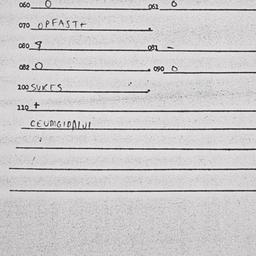 060 0 061 0
070 OPFAST+
080 9 081 -
082 0 090 0
100 SUKES
110 +
CEUMGIDAIUI